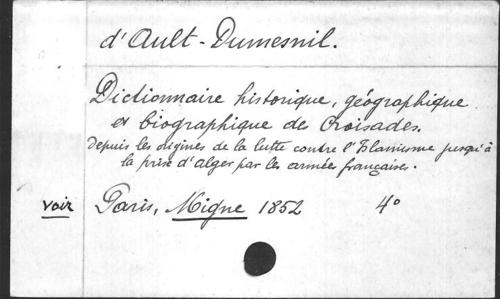 d'Ault-Dumesnil.
Dictionnaire historique, géographique
et biographique des Croisades.
depuis les origines de la lutte contre l'Islamisme jusqu'à
la prise d'Alger par les armées françaises.
voir Paris, Migne 1852 4°